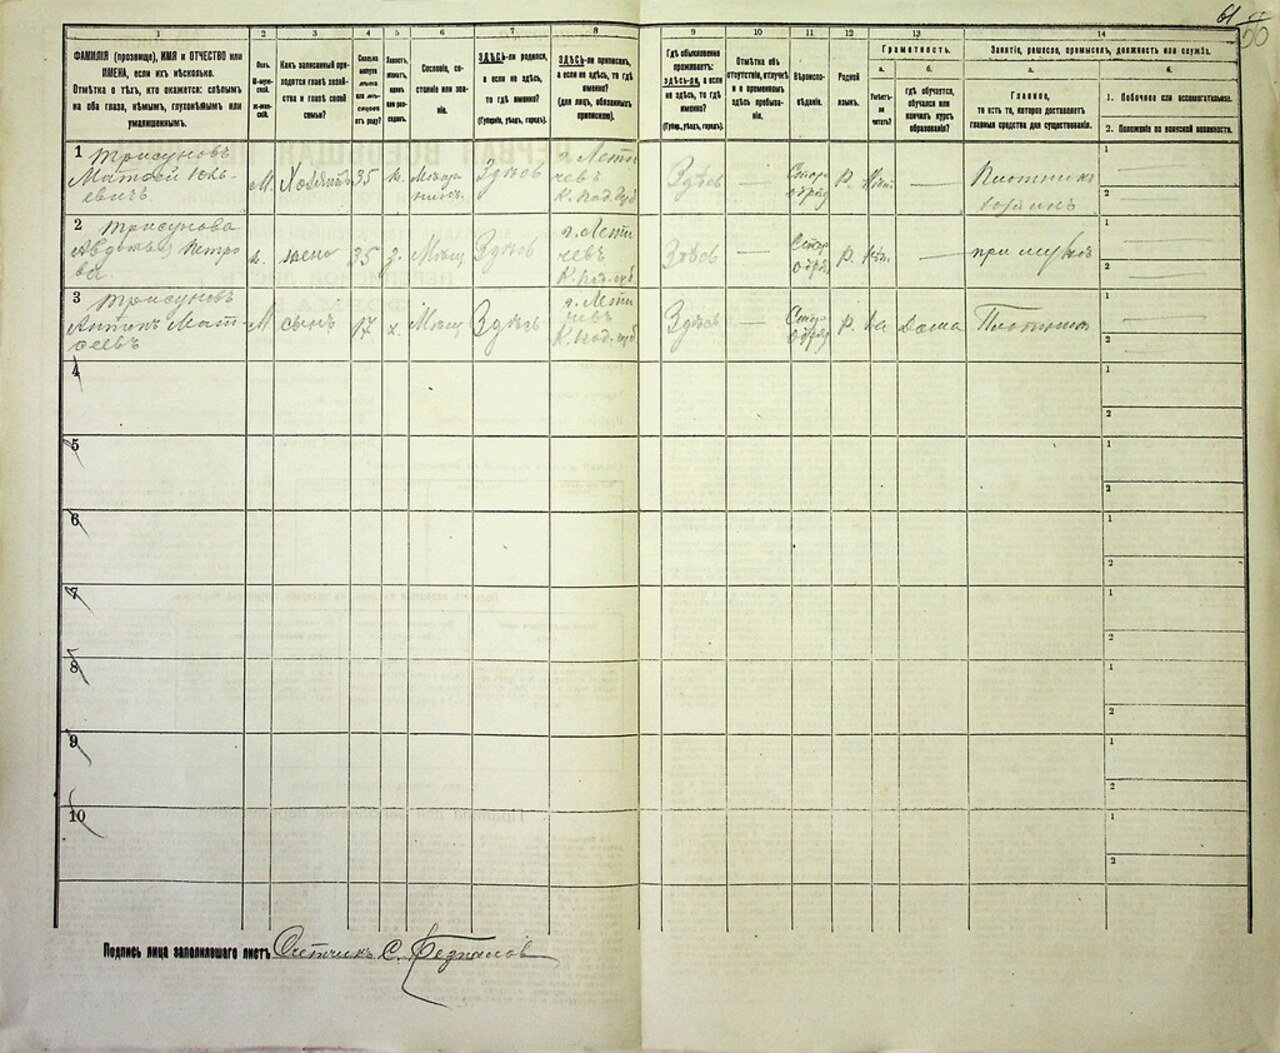 61
56
1
2
3
4
5
6
7
8
9
10
11
12
13
14
ФАМИЛІЯ (прозвище), ИМЯ и ОТЧЕСТВО или
ИМЕНА, если ихъ нѣсколько.
Отмѣтка о тѣхъ, кто окажется: слѣпымъ
на оба глаза, нѣмымъ, глухонѣмымъ или
умалишеннымъ.
Полъ.
М-мужской.
Ж-женскій.
Какъ записанный приходится
главѣ хозяйства и главѣ своей
семьи?
Сколько минуло лѣтъ или мѣсяцевъ отъ роду?
Холостъ, женатъ, вдовъ или разведенъ.
Сословіе, состояніе или званіе.
ЗДѢСЬ-ли родился,
а если не здѣсь,
то гдѣ именно?
(Губернія, уѣздъ, городъ).
ЗДѢСЬ-ли приписанъ,
а если не здѣсь, то гдѣ
именно?
(для лицъ, обязанныхъ
припиской).
Гдѣ обыкновенно
проживаетъ:
здѣсь-ли, а если
не здѣсь, то гдѣ
именно?
(Губерн., уѣздъ, городъ).
Отмѣтка объ
отсутствіи, отлучкѣ
и о временномъ
здѣсь пребываніи.
Вѣроисповѣданіе.
Родной
языкъ.
Грамотность.
а.
Умѣетъ-ли
читать?
б.
гдѣ обучается,
обучался или
кончилъ курсъ
образованія?
Занятіе, ремесло, промыселъ, должность или служба.
а.
Главное,
то есть то, которое доставляетъ
главныя средства для существованія.
б.
1. Побочное или вспомогательное.
2. Положеніе по воинской повинности.
1 Трисуновъ
Матвей Юльевичъ М. Хозяинъ 35 ж. Мѣщанинъ Здѣсь г. Летичевъ К. Под. губ Здѣсь — Старообряд Р. Нѣт — Плотникъ хозяинъ
1 —
2 —
2 Трисунова
Авдотья Петрова ж. жена 35 з. Мѣщ. Здѣсь г. Летичевъ К. Под. губ Здѣсь — Старообря Р. Нѣт. — при мужѣ
1 —
2 —
3 Трисуновъ
Антипъ Матвеевъ М. сынъ 17 х. Мѣщ Здѣсь г. Летичевъ К. Под. губ Здѣсь — Старообряд Р. да дома Плотник
1 —
2 —
4
1
2
5
1
2
6
1
2
7
1
2
8
1
2
9
1
2
10
1
2
Подпись лица заполнявшаго листъ Счетчикъ С.